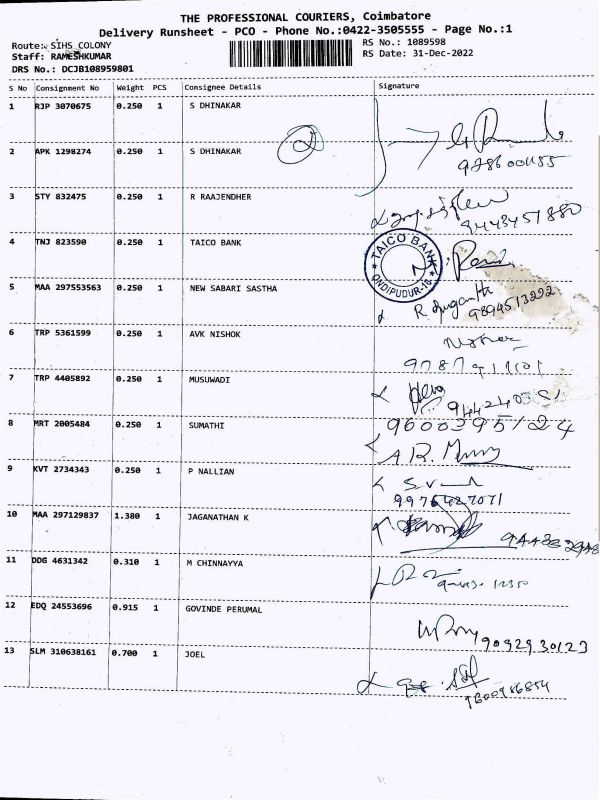 THE PROFESSIONAL COURIERS, Coimbatore
Delivery Runsheet - PCO - Phone No.:0422-3505555 - Page No.:1
Route: SIHS COLONY
RS No.: 1089598
Staff: RAMESHKUMAR
RS Date: 31-Dec-2022
DRS No.: DCJB108959801
S No Consignment No Weight PCS Consignee Details Signature
1 RJP 3070675 0.250 1 S DHINAKAR
2 APK 1298274 0.250 1 S DHINAKAR
3 STY 832475 0.250 1 R RAAJENDHER
9443451880
4 TNJ 823590 0.250 1 TAICO BANK
TAICO BANK
ONDIPUDUR-16
5 MAA 297553563 0.250 1 NEW SABARI SASTHA
9894513292
6 TRP 5361599 0.250 1 AVK NISHOK
7 TRP 4405892 0.250 1 MUSUWADI
8 MRT 2005484 0.250 1 SUMATHI
9600395124
9 KVT 2734343 0.250 1 P NALLIAN
9976427071
10 MAA 297129837 1.380 1 JAGANATHAN K
11 DDG 4631342 0.310 1 M CHINNAYYA
12 EDQ 24553696 0.915 1 GOVINDE PERUMAL
9092930123
13 SLM 310638161 0.700 1 JOEL